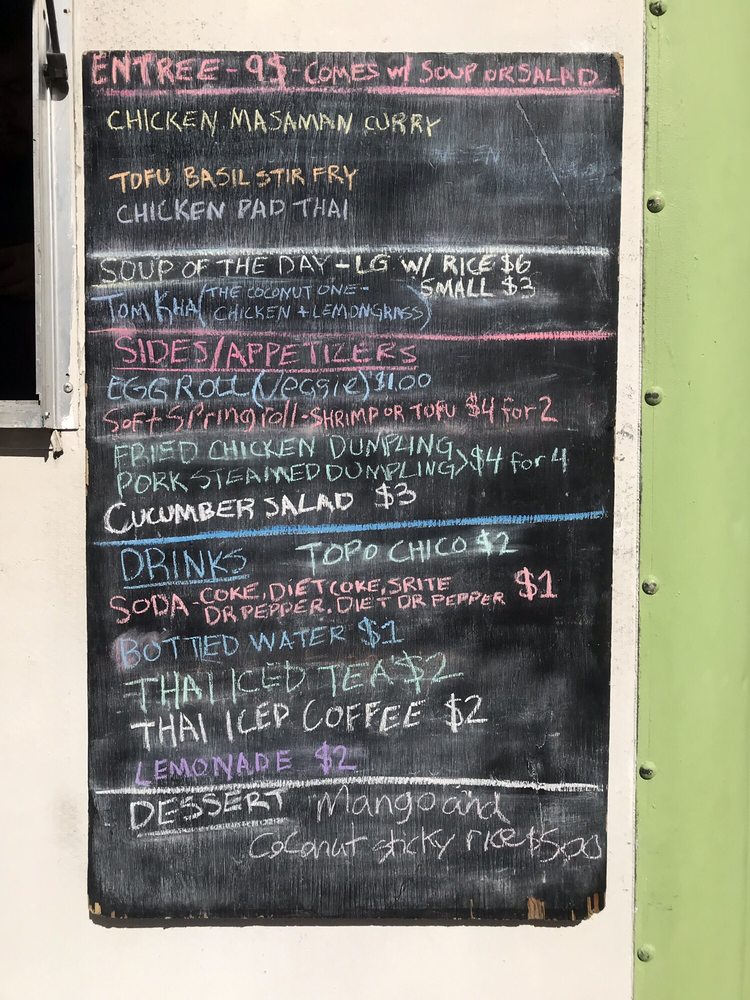 ENTREE - 9$ - COMES W/ SOUP OR SALAD
CHICKEN MASAMAN CURRY
TOFU BASIL STIR FRY
CHICKEN PAD THAI
SOUP OF THE DAY - LG W/ RICE $6
SMALL $3
TOM KHA (THE COCONUT ONE -
CHICKEN + LEMONGRASS)
SIDES/APPETIZERS
EGG ROLL (Veggie) $1.00
Soft Spring roll - SHRIMP OR TOFU $4 for 2
FRIED CHICKEN DUMPLING
PORK STEAMED DUMPLING > $4 for 4
CUCUMBER SALAD $3
DRINKS TOPO CHICO $2
SODA - COKE, DIET COKE, SRITE $1
DR PEPPER, DIET DR PEPPER
BOTTLED WATER $1
THAI ICED TEA $2
THAI ICED COFFEE $2
LEMONADE $2
DESSERT Mango and
Coconut sticky rice $5.00